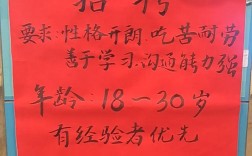 招聘
要求:性格开朗、吃苦耐劳
善于学习、沟通能力强
年龄:18～30岁
有经验者优先